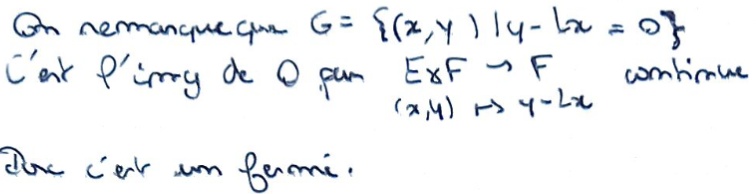 On remarque que G = {(x,y) | y - Lx = 0}
C'est l'img de 0 par E×F → F continue
(x,y) ↦ y - Lx
Donc c'est un fermé.